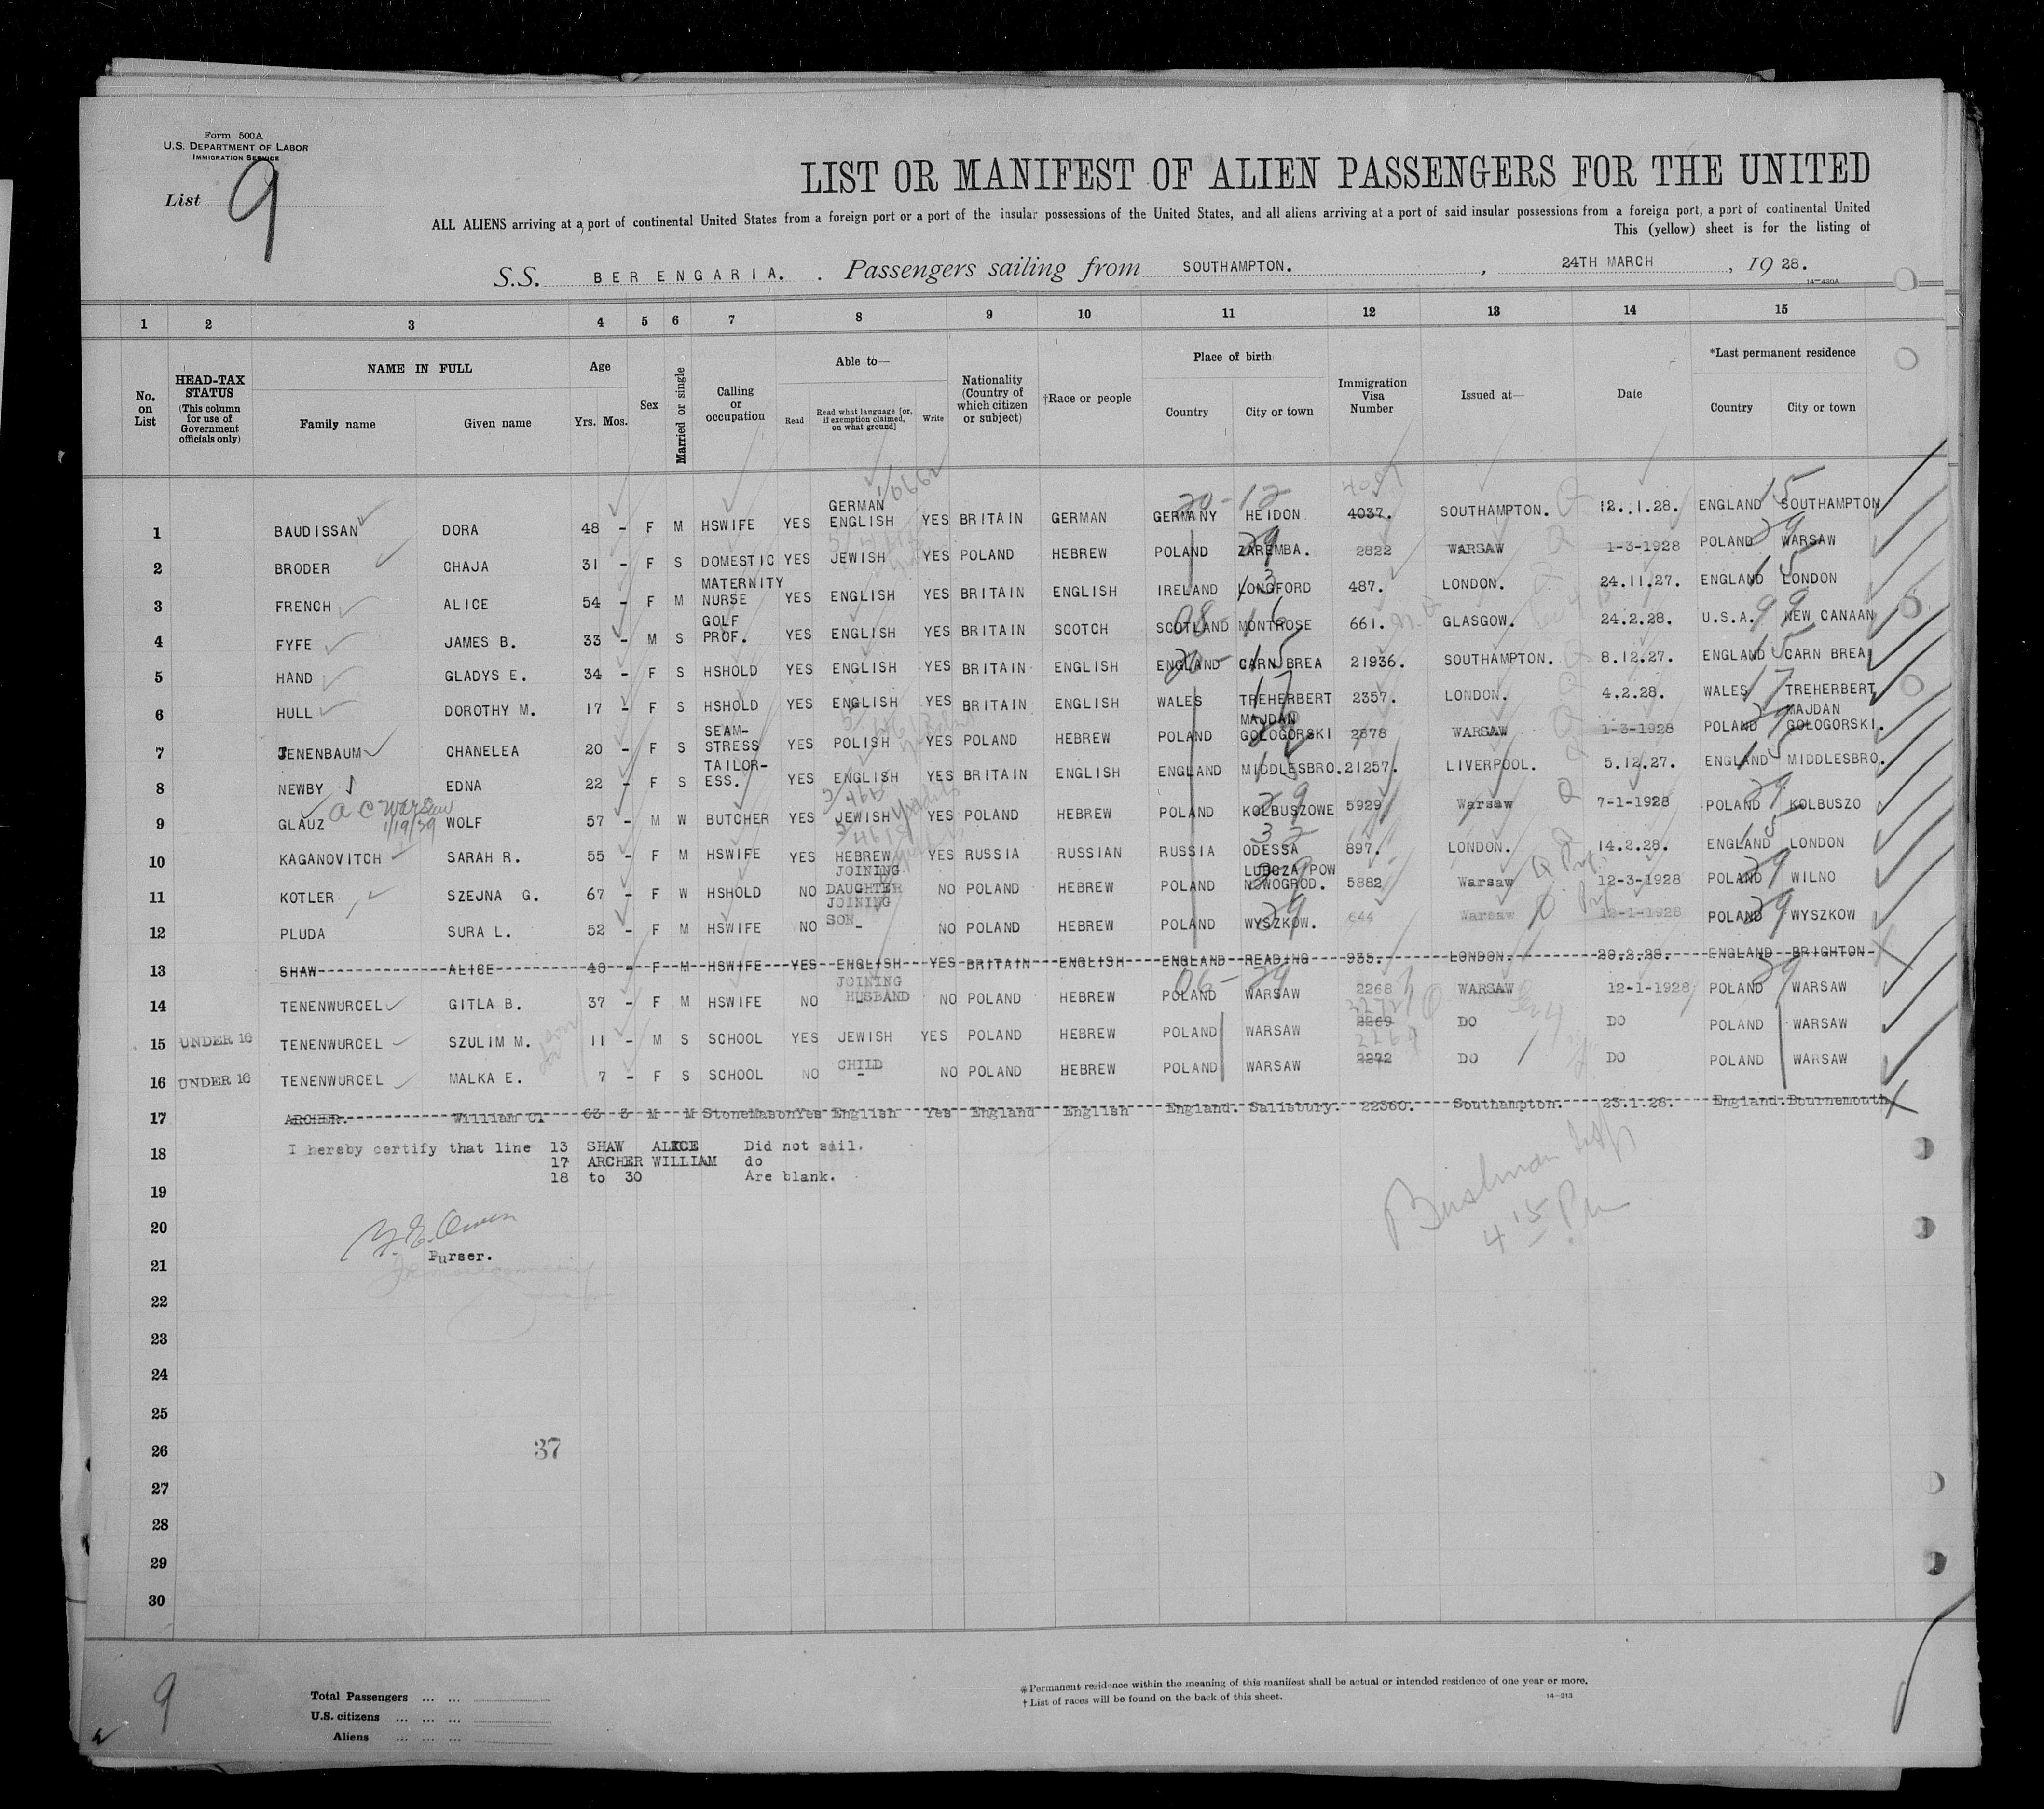 Form 500A
U.S. DEPARTMENT OF LABOR
IMMIGRATION SERVICE
List 9
LIST OR MANIFEST OF ALIEN PASSENGERS FOR THE UNITED
ALL ALIENS arriving at a port of continental United States from a foreign port or a port of the insular possessions of the United States, and all aliens arriving at a port of said insular possessions from a foreign port, a port of continental United
This (yellow) sheet is for the listing of
S.S. BERENGARIA. Passengers sailing from SOUTHAMPTON. , 24TH MARCH , 1928.
14-430A
1 2 3 4 5 6 7 8 9 10 11 12 13 14 15
No. on List
HEAD-TAX STATUS (This column for use of Government officials only)
NAME IN FULL
Family name Given name
Age
Yrs. Mos.
Sex
Married or single
Calling or occupation
Able to—
Read Read what language [or, if exemption claimed, on what ground] Write
Nationality (Country of which citizen or subject)
†Race or people
Place of birth
Country City or town
Immigration Visa Number
Issued at—
Date
*Last permanent residence
Country City or town
1 BAUDISSAN DORA 48 - F M HSWIFE YES GERMAN ENGLISH YES BRITAIN GERMAN GERMANY HEIDON 4037. SOUTHAMPTON. 12.1.28. ENGLAND SOUTHAMPTON
2 BRODER CHAJA 31 - F S DOMESTIC YES JEWISH YES POLAND HEBREW POLAND ZAREMBA. 2822 WARSAW 1-3-1928 POLAND WARSAW
3 FRENCH ALICE 54 - F M MATERNITY NURSE YES ENGLISH YES BRITAIN ENGLISH IRELAND LONGFORD 487. LONDON. 24.11.27. ENGLAND LONDON
4 FYFE JAMES B. 33 - M S GOLF PROF. YES ENGLISH YES BRITAIN SCOTCH SCOTLAND MONTROSE 661. GLASGOW. 24.2.28. U.S.A. NEW CANAAN
5 HAND GLADYS E. 34 - F S HSHOLD YES ENGLISH YES BRITAIN ENGLISH ENGLAND CARN BREA 21936. SOUTHAMPTON. 8.12.27. ENGLAND CARN BREA
6 HULL DOROTHY M. 17 - F S HSHOLD YES ENGLISH YES BRITAIN ENGLISH WALES TREHERBERT 2357. LONDON. 4.2.28. WALES TREHERBERT
7 JENENBAUM CHANELEA 20 - F S SEAM-STRESS YES POLISH YES POLAND HEBREW POLAND MAJDAN GOLOGORSKI 2878 WARSAW 1-3-1928 POLAND MAJDAN GOLOGORSKI.
8 NEWBY EDNA 22 - F S TAILOR-ESS. YES ENGLISH YES BRITAIN ENGLISH ENGLAND MIDDLESBRO. 21257. LIVERPOOL. 5.12.27. ENGLAND MIDDLESBRO.
a c Warsaw 1/19/39
9 GLAUZ WOLF 57 - M W BUTCHER YES JEWISH YES POLAND HEBREW POLAND KOLBUSZOWE 5929 Warsaw 7-1-1928 POLAND KOLBUSZO
10 KAGANOVITCH SARAH R. 55 - F M HSWIFE YES HEBREW YES RUSSIA RUSSIAN RUSSIA ODESSA 897. LONDON. 14.2.28. ENGLAND LONDON
11 KOTLER SZEJNA G. 67 - F W HSHOLD NO JOINING DAUGHTER NO POLAND HEBREW POLAND LUBCZA POW NOWOGROD. 5882 Warsaw 12-3-1928 POLAND WILNO
12 PLUDA SURA L. 52 - F M HSWIFE NO JOINING SON - NO POLAND HEBREW POLAND WYSZKOW. 644 Warsaw 12-1-1928 POLAND WYSZKOW
13 SHAW ALICE 40 - F M HSWIFE YES ENGLISH YES BRITAIN ENGLISH ENGLAND READING 935. LONDON. 20.2.28. ENGLAND BRIGHTON
14 TENENWURCEL GITLA B. 37 - F M HSWIFE NO JOINING HUSBAND NO POLAND HEBREW POLAND WARSAW 2268 WARSAW 12-1-1928 POLAND WARSAW
15 UNDER 16 TENENWURCEL SZULIM M. 11 - M S SCHOOL YES JEWISH YES POLAND HEBREW POLAND WARSAW 2269 DO DO POLAND WARSAW
16 UNDER 16 TENENWURCEL MALKA E. 7 - F S SCHOOL NO CHILD - NO POLAND HEBREW POLAND WARSAW 2272 DO DO POLAND WARSAW
17 ARCHER. William C. 63 3 M M StoneMason Yes English Yes England English England. Salisbury. 22360. Southampton. 23.1.28. England. Bournemouth
18 I hereby certify that line 13 SHAW ALICE Did not sail.
17 ARCHER WILLIAM do
18 to 30 Are blank.
19
20
Purser.
21
22
23
24
25
26 37
27
28
29
30
4 15 Pm
9
Total Passengers ... ...
U.S. citizens ... ... ...
Aliens ... ... ...
*Permanent residence within the meaning of this manifest shall be actual or intended residence of one year or more.
†List of races will be found on the back of this sheet.
14-213